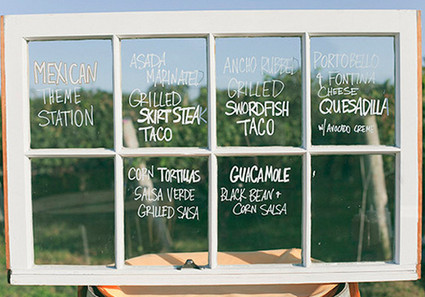 MEXICAN
THEME
STATION
ASADA
MARINATED
GRILLED
SKIRT STEAK
TACO
ANCHO RUBBED
GRILLED
SWORDFISH
TACO
PORTOBELLO
& FONTINA
CHEESE
QUESADILLA
W/ AVOCADO CREMA
CORN TORTILLAS
SALSA VERDE
GRILLED SALSA
GUACAMOLE
BLACK BEAN +
CORN SALSA